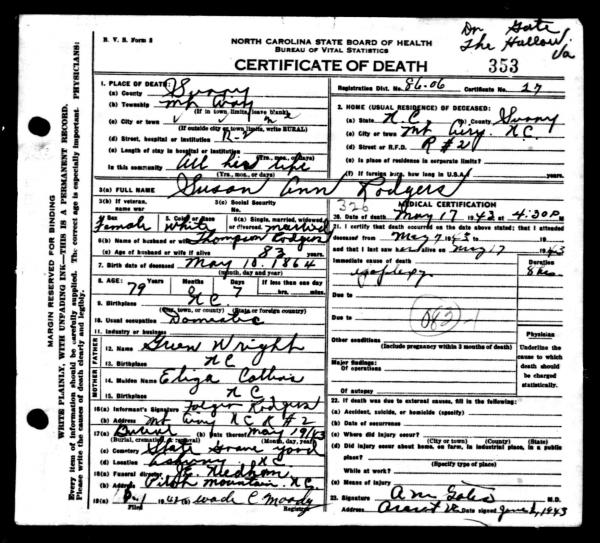 Dr. Gates
The Hollow
Va
B. V. S. Form 8
NORTH CAROLINA STATE BOARD OF HEALTH
BUREAU OF VITAL STATISTICS
CERTIFICATE OF DEATH
353
Registration Dist. No. 86-06 Certificate No. 27
1. PLACE OF DEATH:
(a) County Surry
(b) Township Mt Airy
(If in town limits, leave blank)
(c) City or town
(If outside city or town limits, write RURAL)
(d) Street, hospital or institution R-2
(e) Length of stay in hospital or institution
(Yrs., mos., or days)
In this community All his life
(Yrs., mos., or days)
2. HOME (USUAL RESIDENCE) OF DECEASED:
(a) State N.C. (b) County Surry
(c) City or town Mt. Airy. N.C.
(d) Street or R.F.D. R #2
(e) Is place of residence in corporate limits?
(f) If foreign born, how long in U.S.A. years
3(a) FULL NAME Susan Ann Rodgers
3(b) If veteran, name war
3(c) Social Security No.
Sex Female
5. Color or Race White
6(a) Single, married, widowed or divorced. married
6(b) Name of husband or wife Thompson Rodgers
6(c) Age of husband or wife if alive 83 years
7. Birth date of deceased May 10. 1864
(month, day and year)
8. AGE: Years Months Days If less than one day
79 0 7 hrs. min.
9. Birthplace N.C.
(City, town, or county) (State or foreign country)
10. Usual occupation Domestic
11. Industry or business
FATHER
12. Name Green Wright
13. Birthplace N C
MOTHER
14. Maiden Name Eliza Collins
15. Birthplace N C
16(a) Informant's Signature Rodgers
(b) Address Mt Airy N.C. R #2
17(a) Burial (b) Date thereof May 19/43
(Burial, cremation, or removal) (Month, day, year)
(c) Cemetery State Grave yard
(d) Location N.C.
18(a) Funeral director Needham
(b) Address Pilot Mountain, N.C.
19(a) 6-1 1943 Wade C Moody
Filed Registrar
326
MEDICAL CERTIFICATION
20. Date of death May 17 1943 at 4:30 P M.
21. I certify that death occurred on the date above stated; that I attended
deceased from May 7 1943 to 19
and that I last saw alive on May 17 1943
Immediate cause of death Duration
apoplexy 8 hrs.
Due to
083-1
Due to
Other conditions
(Include pregnancy within 3 months of death)
Major findings:
Of operations
Of autopsy
Physician
Underline the cause to which death should be charged statistically.
22. If death was due to external causes, fill in the following:
(a) Accident, suicide, or homicide (specify)
(b) Date of occurrence
(c) Where did injury occur?
(City or town) (County) (State)
(d) Did injury occur about home, on farm, in industrial place, in public place?
(Specify type of place)
While at work?
(e) Means of injury
23. Signature A M Gates M.D.
Address Ararat Va Date signed June 1, 1943
MARGIN RESERVED FOR BINDING
WRITE PLAINLY, WITH UNFADING INK—THIS IS A PERMANENT RECORD.
Every item of information should be carefully supplied. The correct age is especially important. PHYSICIANS:
Please write the causes of death clearly and legibly.